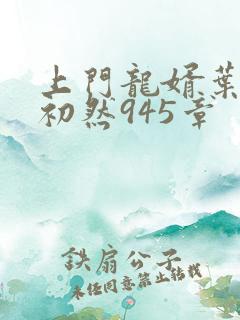 上門龍婿葉
初然945章
鉄扇公子
未经同意禁止转载